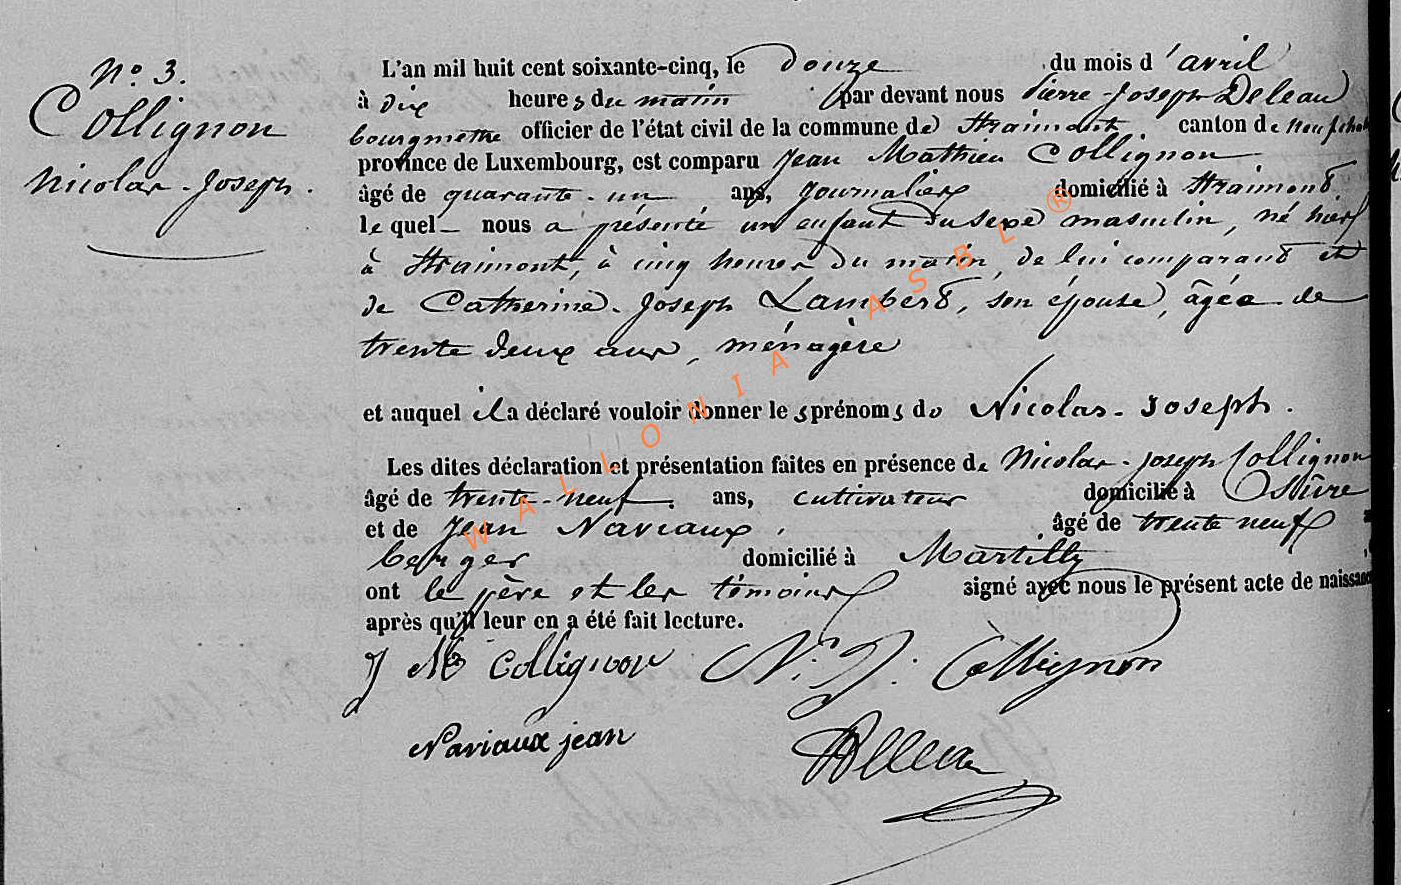 No 3.
Collignon
Nicolas-Joseph.
L'an mil huit cent soixante-cinq, le douze du mois d'avril
à dix heures du matin par devant nous Pierre-Joseph Deleau
bourgmestre officier de l'état civil de la commune de Straimont, canton de Neufchat
province de Luxembourg, est comparu Jean Mathieu Collignon
âgé de quarante-un ans, journalier domicilié à Straimont
lequel nous a présenté un enfant du sexe masculin, né hier
à Straimont, à cinq heures du matin, de lui comparant et
de Catherine-Joseph Lambert, son épouse, âgée de
trente deux ans, ménagère
et auquel il a déclaré vouloir donner les prénoms de Nicolas-Joseph.
Les dites déclaration et présentation faites en présence de Nicolas-Joseph Collignon
âgé de trente-neuf ans, cultivateur domicilié à
et de Jean Naviaux, âgé de trente neuf
berger domicilié à Martilly
ont le père et les témoins signé avec nous le présent acte de naissance
après qu'il leur en a été fait lecture.
J M Collignon N. J. Collignon
Naviaux jean Deleau
WALLONIA ASBL ®